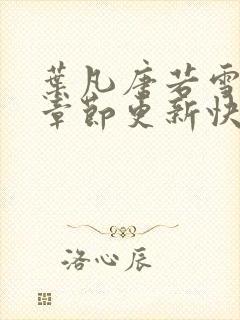 葉凡唐若雪
章節更新快
洛心辰